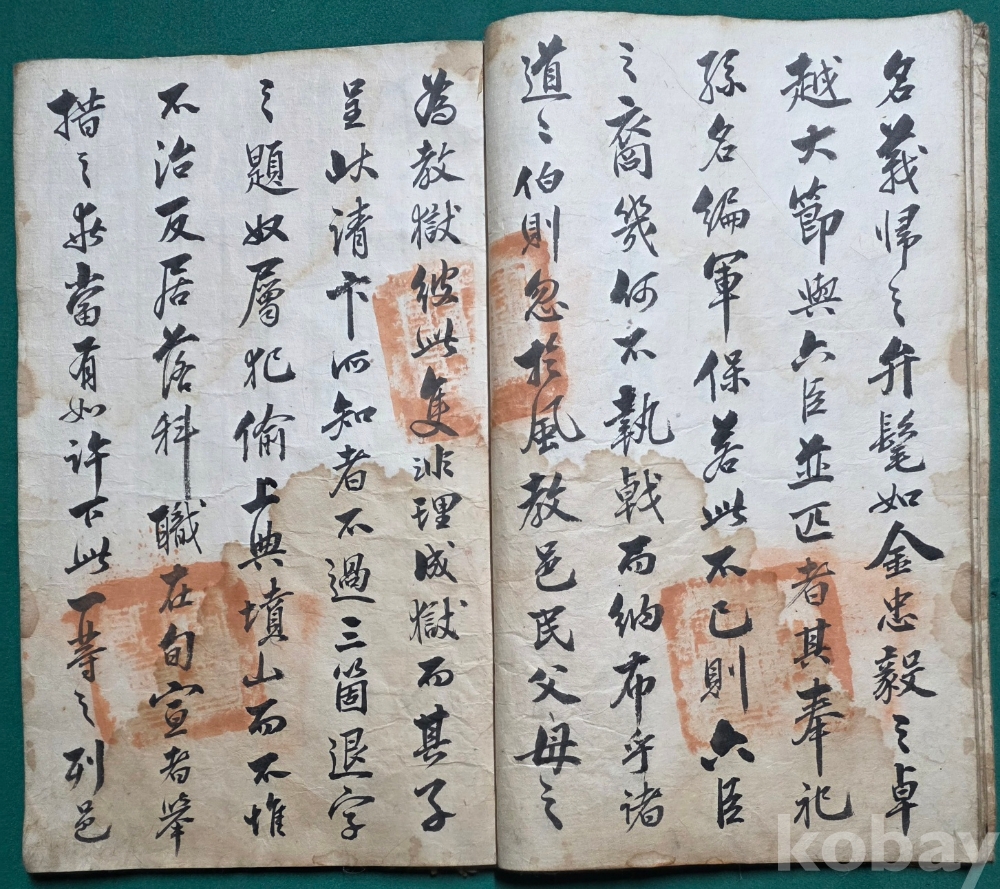 名義歸之弁髦如金忠毅之卓
越大節與六臣並匹者其奉祀
孫名編軍保若此不已則六臣
之裔幾何不執戟而納布乎諸
道之伯則忽於風教邑民父母之
為教獄彼此隻非理成獄而其子
呈此請卞而知者不過三箇退字
之題奴屬犯偷上典墳山而不惟
不治反居落科職在旬宣者舉
措之 當有如許下此一等之列邑
kobay